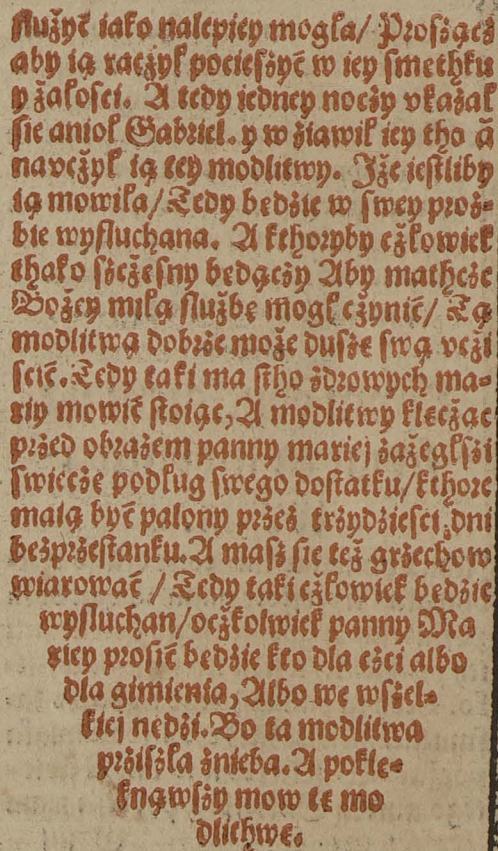 służyć iako nalepiey mogła/ Proſżącż
aby ią racżył pocieſżyć w iey ſmethku
y żałoſci. A tedy iedney nocży vkażał
ſie anioł Gabriel. y w żiawił iey tho ā
navcżył ią tey modlitwy. Jże ieſtliby
ią mowiła/ Tedy będżie w ſwey proż⸗
bie wyſluchana. A kthoryby cżłowiek
thako ſżcżeſny będącży Aby mathcże
Bożey miłą ſłużbę mogł cżynić/ Tą
modlitwą dobrże może duſżę ſwą vcżi
ſcić. Tedy taki ma ſtho żdrowych ma⸗
riy mowić ſtoiąc, A modlitwy klecżąc
prżed obrażem panny mariej żażegłſżi
ſwiecże podług ſwego doſtatku/ kthore
maią być palony prżeż trżydżieſci dni
beżprżeſtanku. A maſż ſie też grżechow
wiarować / Tedy taki cżłowiek będżie
wyſluchan/ ocżkolwiek panny Ma
riey proſić będżie kto dla cżci albo
dla gimienia, Albo we wſżel⸗
kiej nędżi. Bo ta modlitwa
prżiſżła żnieba. A pokle⸗
knąwſży mow tę mo
dlithwę.